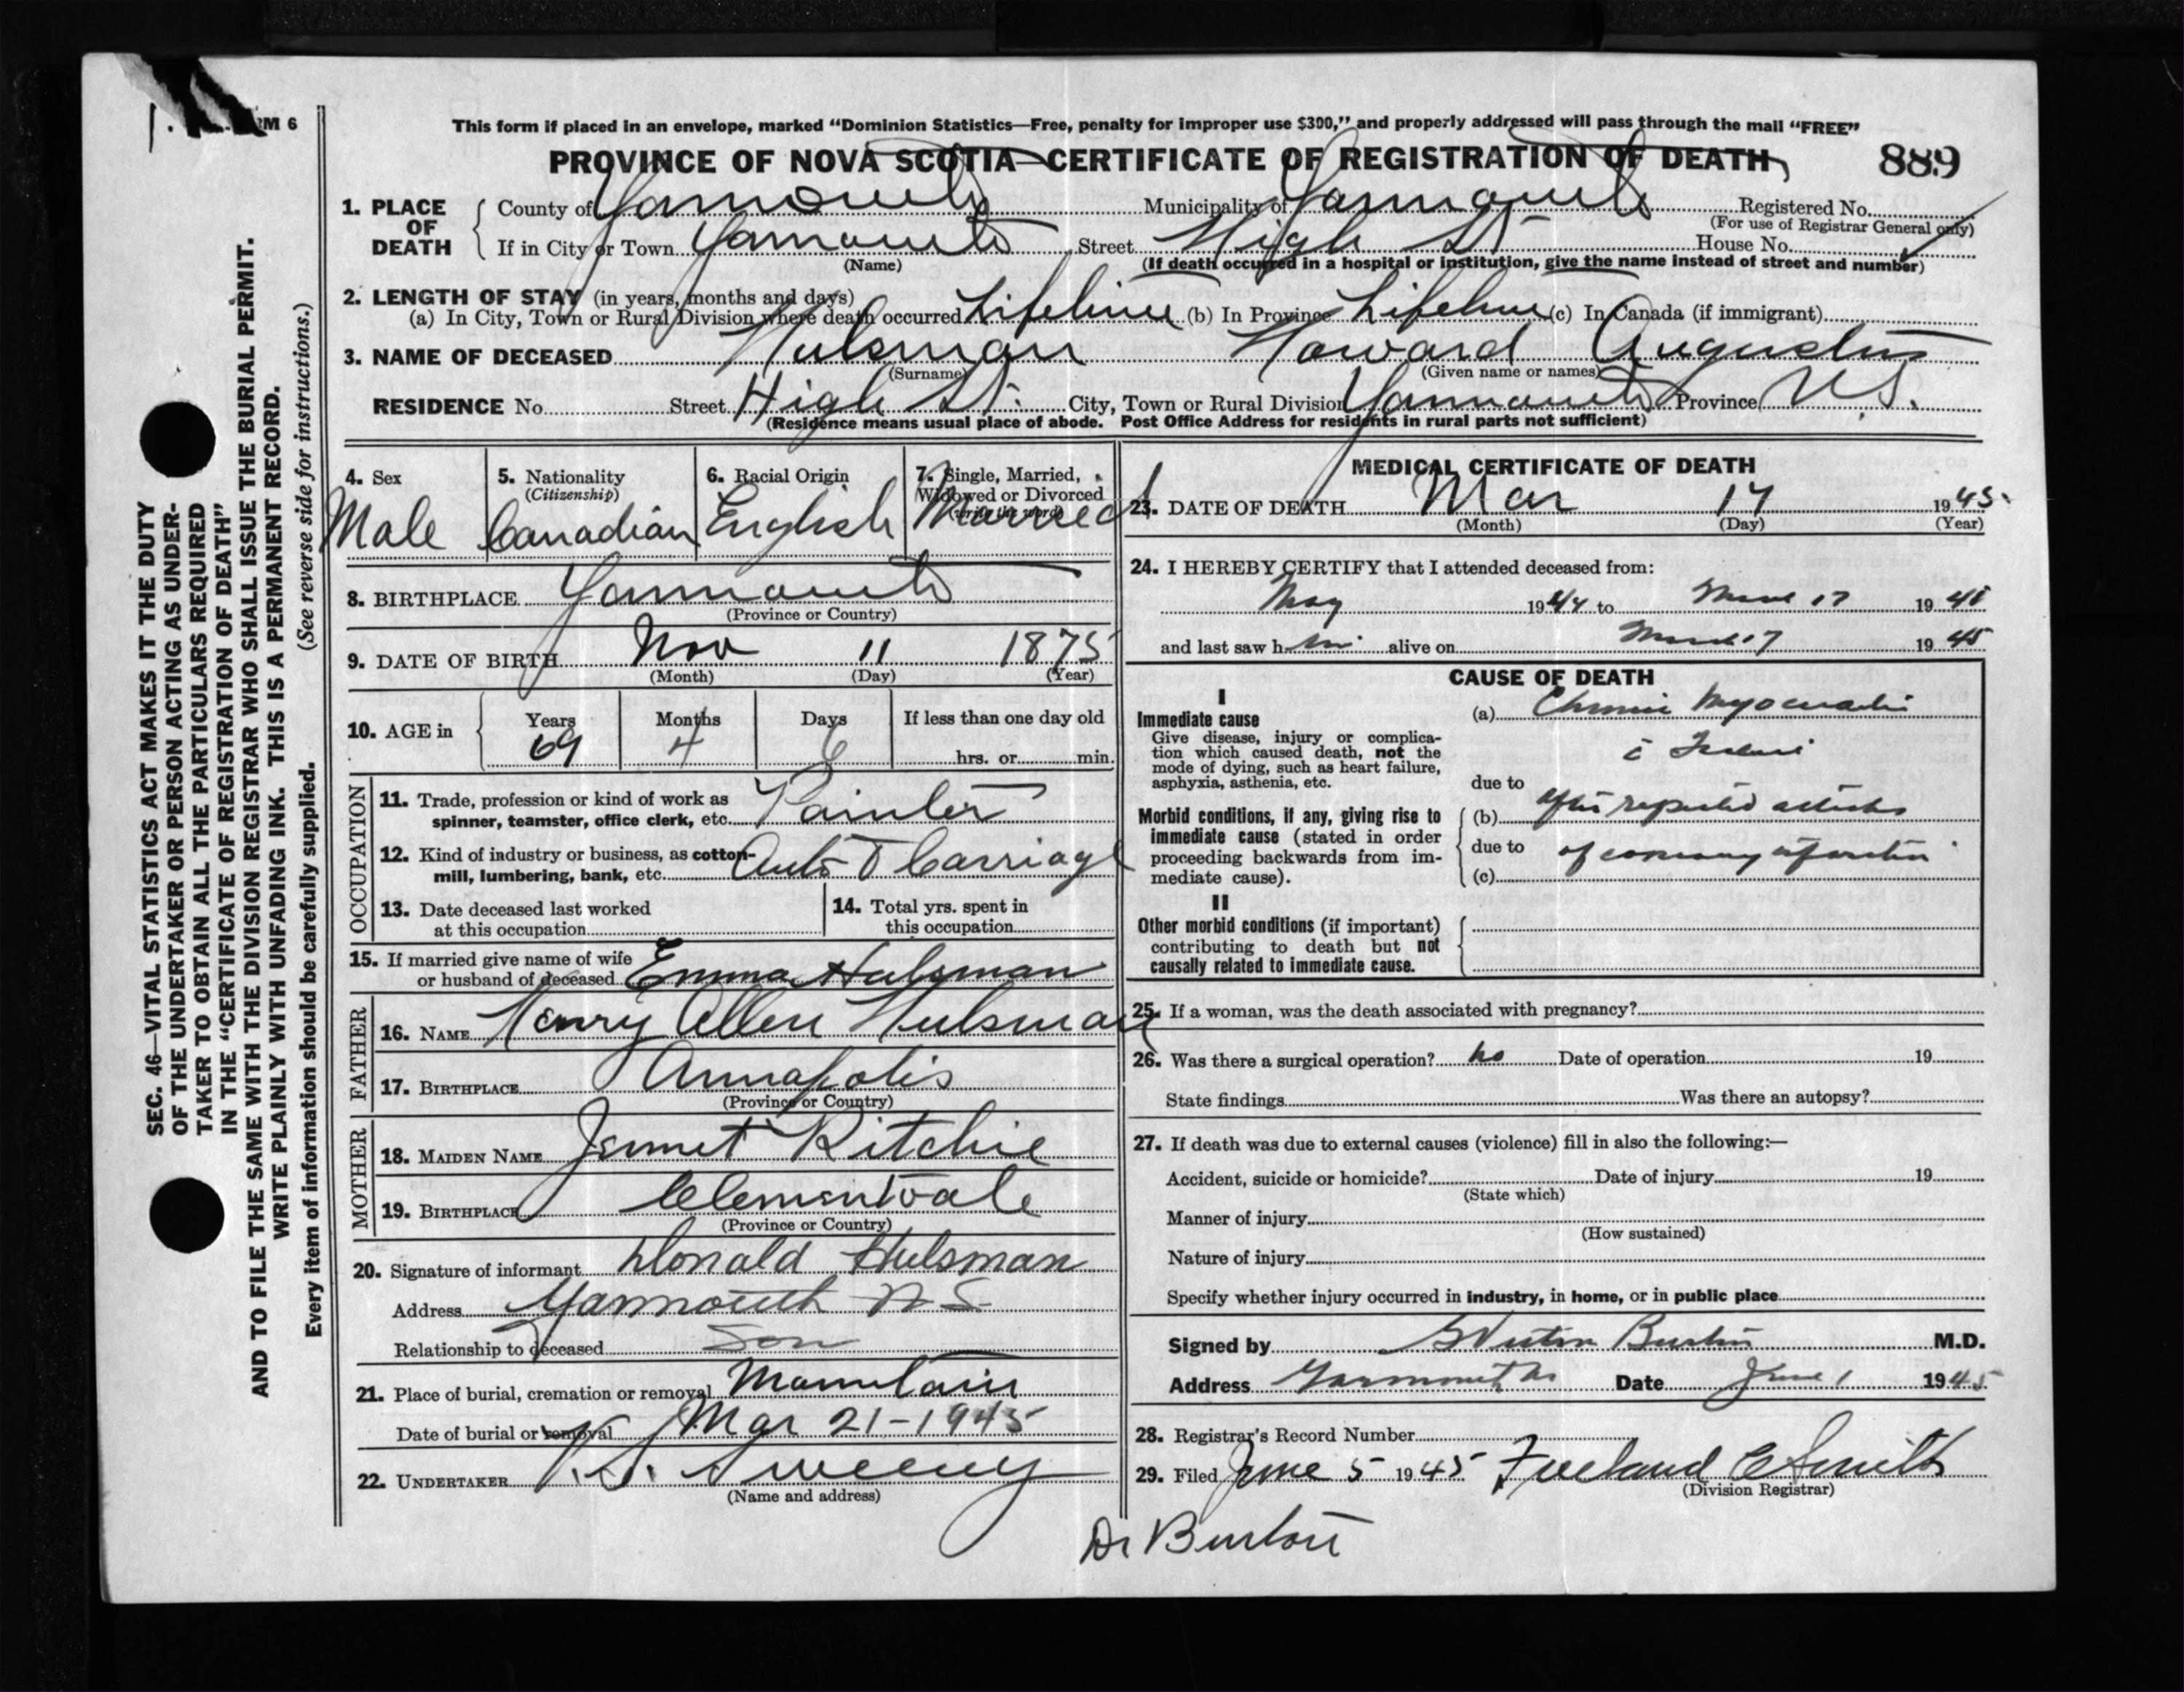 RM 6
This form if placed in an envelope, marked "Dominion Statistics—Free, penalty for improper use $300," and properly addressed will pass through the mail "FREE"
PROVINCE OF NOVA SCOTIA—CERTIFICATE OF REGISTRATION OF DEATH
889
1. PLACE OF DEATH
County of Yarmouth Municipality of Yarmouth Registered No.
(For use of Registrar General only)
If in City or Town Yarmouth Street High St House No.
(Name) (If death occurred in a hospital or institution, give the name instead of street and number)
2. LENGTH OF STAY (in years, months and days)
(a) In City, Town or Rural Division where death occurred Lifetime (b) In Province Lifetime (c) In Canada (if immigrant)
3. NAME OF DECEASED Hulsman Howard Augustus
(Surname) (Given name or names)
RESIDENCE No. Street High St. City, Town or Rural Division Yarmouth Province N.S.
(Residence means usual place of abode. Post Office Address for residents in rural parts not sufficient)
4. Sex
Male
5. Nationality
(Citizenship)
Canadian
6. Racial Origin
English
7. Single, Married,
Widowed or Divorced
(write the word)
Married
8. BIRTHPLACE Yarmouth
(Province or Country)
9. DATE OF BIRTH Nov 11 1875
(Month) (Day) (Year)
10. AGE in
Years Months Days If less than one day old
69 4 6 hrs. or min.
OCCUPATION
11. Trade, profession or kind of work as
spinner, teamster, office clerk, etc. Painter
12. Kind of industry or business, as cotton-
mill, lumbering, bank, etc. Auto & Carriage
13. Date deceased last worked
at this occupation
14. Total yrs. spent in
this occupation
15. If married give name of wife
or husband of deceased Emma Hulsman
FATHER
16. NAME Henry Allen Hulsman
17. BIRTHPLACE Annapolis
(Province or Country)
MOTHER
18. MAIDEN NAME Ritchie
19. BIRTHPLACE Clementvale
(Province or Country)
20. Signature of informant Donald Hulsman
Address Yarmouth N S
Relationship to deceased Son
21. Place of burial, cremation or removal Mountain
Date of burial or removal Mar 21-1945
22. UNDERTAKER Sweeny
(Name and address)
MEDICAL CERTIFICATE OF DEATH
23. DATE OF DEATH Mar 17 1945
(Month) (Day) (Year)
24. I HEREBY CERTIFY that I attended deceased from:
May 1944 to March 17 1945
and last saw him alive on March 17 1945
CAUSE OF DEATH
I
Immediate cause
Give disease, injury or complica-
tion which caused death, not the
mode of dying, such as heart failure,
asphyxia, asthenia, etc.
(a) Chronic Myocarditis
c̄ Failure
due to
Morbid conditions, if any, giving rise to
immediate cause (stated in order
proceeding backwards from im-
mediate cause).
(b) after repeated attacks
due to of coronary infarction
(c)
II
Other morbid conditions (if important)
contributing to death but not
causally related to immediate cause.
25. If a woman, was the death associated with pregnancy?
26. Was there a surgical operation? no Date of operation 19
State findings Was there an autopsy?
27. If death was due to external causes (violence) fill in also the following:—
Accident, suicide or homicide? Date of injury 19
(State which)
Manner of injury
(How sustained)
Nature of injury
Specify whether injury occurred in industry, in home, or in public place
Signed by Burton M.D.
Address Yarmouth NS Date June 1 1945
28. Registrar's Record Number
29. Filed June 5 1945 Freeland C Smith
(Division Registrar)
Dr Burton
SEC. 46—VITAL STATISTICS ACT MAKES IT THE DUTY
OF THE UNDERTAKER OR PERSON ACTING AS UNDER-
TAKER TO OBTAIN ALL THE PARTICULARS REQUIRED
IN THE "CERTIFICATE OF REGISTRATION OF DEATH"
AND TO FILE THE SAME WITH THE DIVISION REGISTRAR WHO SHALL ISSUE THE BURIAL PERMIT.
WRITE PLAINLY WITH UNFADING INK. THIS IS A PERMANENT RECORD.
Every item of information should be carefully supplied. (See reverse side for instructions.)